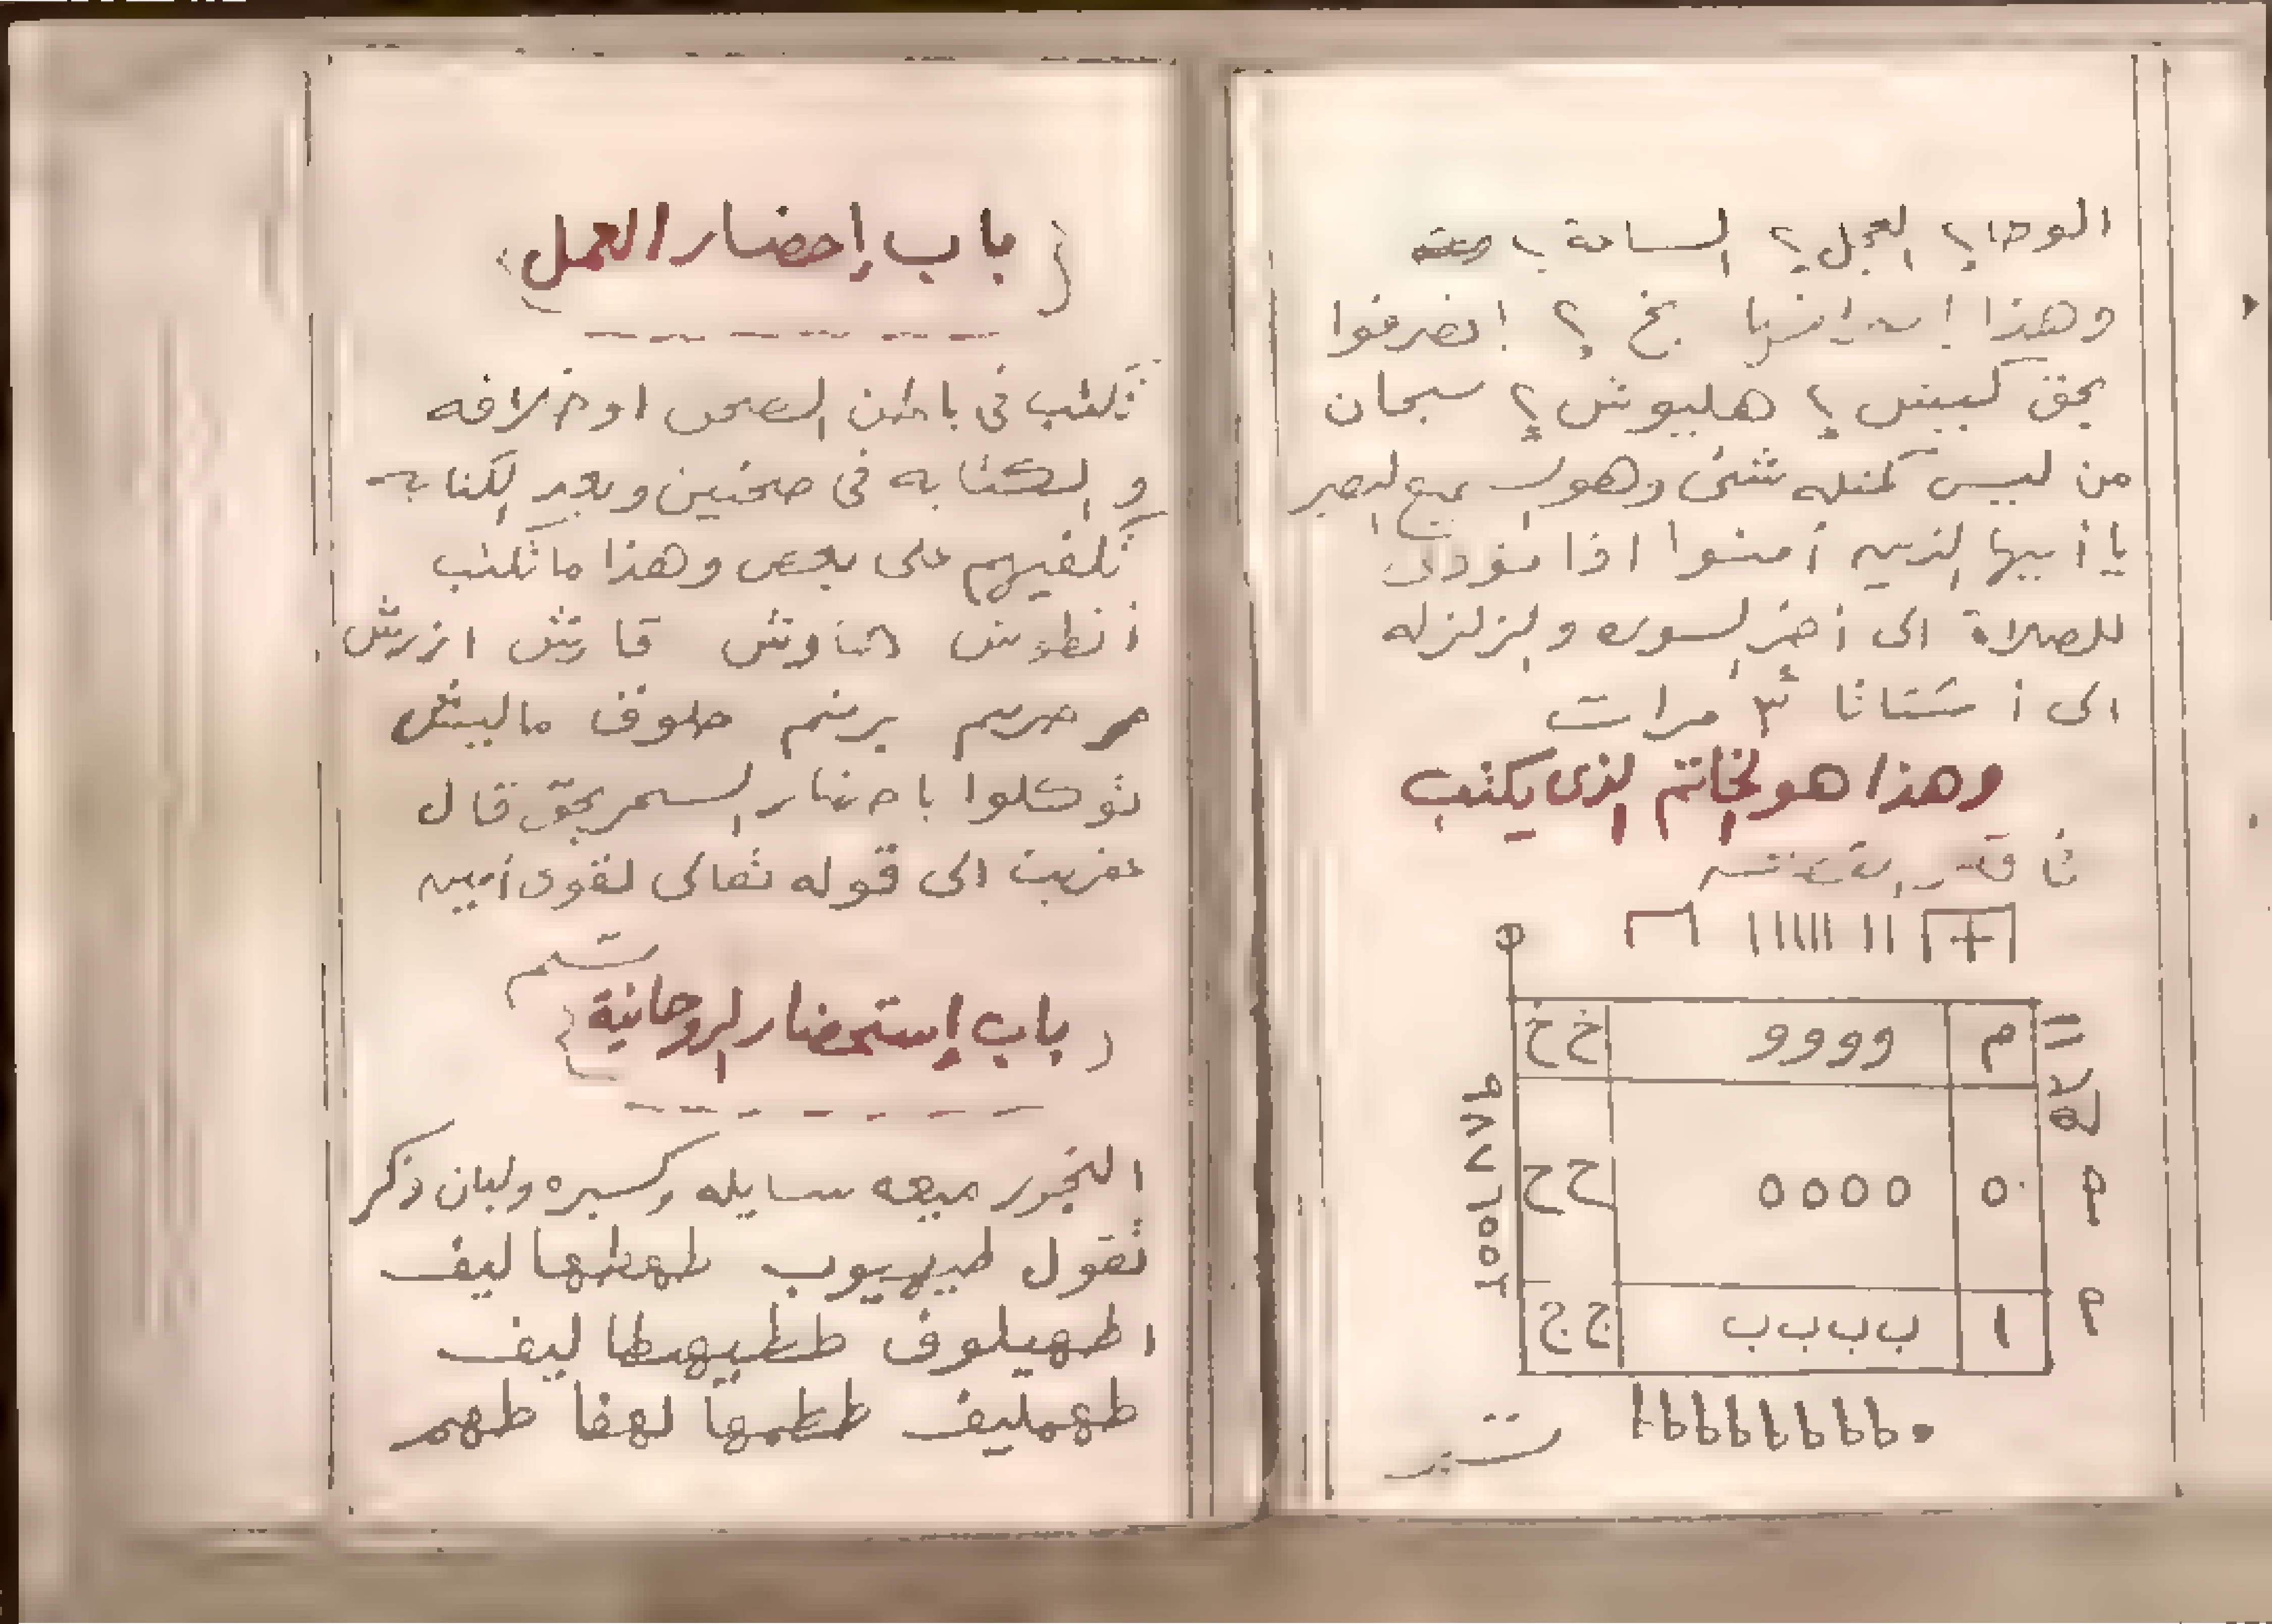 الوحا ٢ العجل ٢ الساعة ٢
وهذا ٢ انصرفوا
بحق ٢ هليوش ٢ سبحان
من ليس كمثله شئ وهو السميع البصير
يا أيها الذين أمنوا اذا نودى
للصلاة الى أخر السوره والزلزله
الى أشتاتا ٣ مرات
وهذا هو الخاتم الذى يكتب
م وووو خ خ
٥ ٥٥٥٥ ح ح
١ ب ب ب ب ج ج
باب إحضار العمل
تكتب فى باطن الصحن او خلافه
و الكتابه فى صحنين وبعد الكتابه
تكفيهم على بعض وهذا ما تكتب
أنطوش قارش ازرش
برشم حلوف ماليش
توكلوا باحضار السحر بحق قال
عفريت الى قوله تعالى لقوى أمين
باب إستحضار الروحانية
البخور ميعه سايله وكسبره ولبان ذكر
تقول طيهيوب طهطهاليف
اطهيلوف ططيهطاليف
طهمليف ططمها لهفا طهم